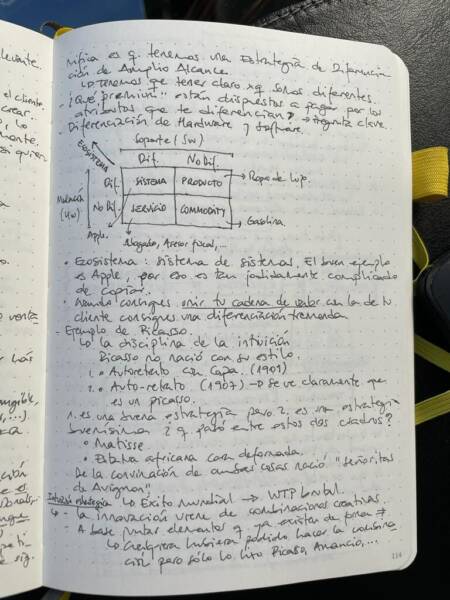 elevante.
el cliente.
crear.
lo
mente.
quien
venta
tangible,
nifica es q tenemos una Estrategia de Diferencia-
ción de Amplio Alcance.
↳ Tenemos que tener claro xq somos diferentes.
¿Qué "premium" están dispuestos a pagar por los
atributos que te diferencian? → Pregunta clave.
Diferenciación de Hardware y Software.
Soporte (SW)
ECOSISTEMA
Dif. No Dif.
Dif. SISTEMA PRODUCTO → Ropa de lujo.
(HW)
No Dif. SERVICIO COMMODITY
Apple. Gasolina.
Abogado, Asesor fiscal,...
• Ecosistema: sistema de sistemas. El buen ejemplo
es Apple, por eso es tan jodidamente complicado
de copiar.
• Cuando consigues unir tu cadena de valor con la de tu
cliente consigues una diferenciación tremenda
- Ejemplo de Picasso.
↳ la disciplina de la intuición
Picasso no nació con su estilo.
1. • Autoretrato con Capa. (1901)
2. • Auto-retrato (1907) → Se ve claramente que
es un picasso.
1. es una buena estrategia pero 2. es una estrategia
buenísima ¿q pasó entre estos dos cuadros?
• Matisse
• Estatua africana cara deformada.
De la convinación de ambas cosas nació "señoritas
de Avignon"
Intuición estratégica ↳ Exito mundial → WTP brutal.
↳ - la innovación viene de combinaciones creativas.
- A base juntar elementos q ya existen de forma ≠
↳ Cualquiera hubiera podido hacer la combina
ción pero sólo lo hizo Picasso, Amancio,...
114